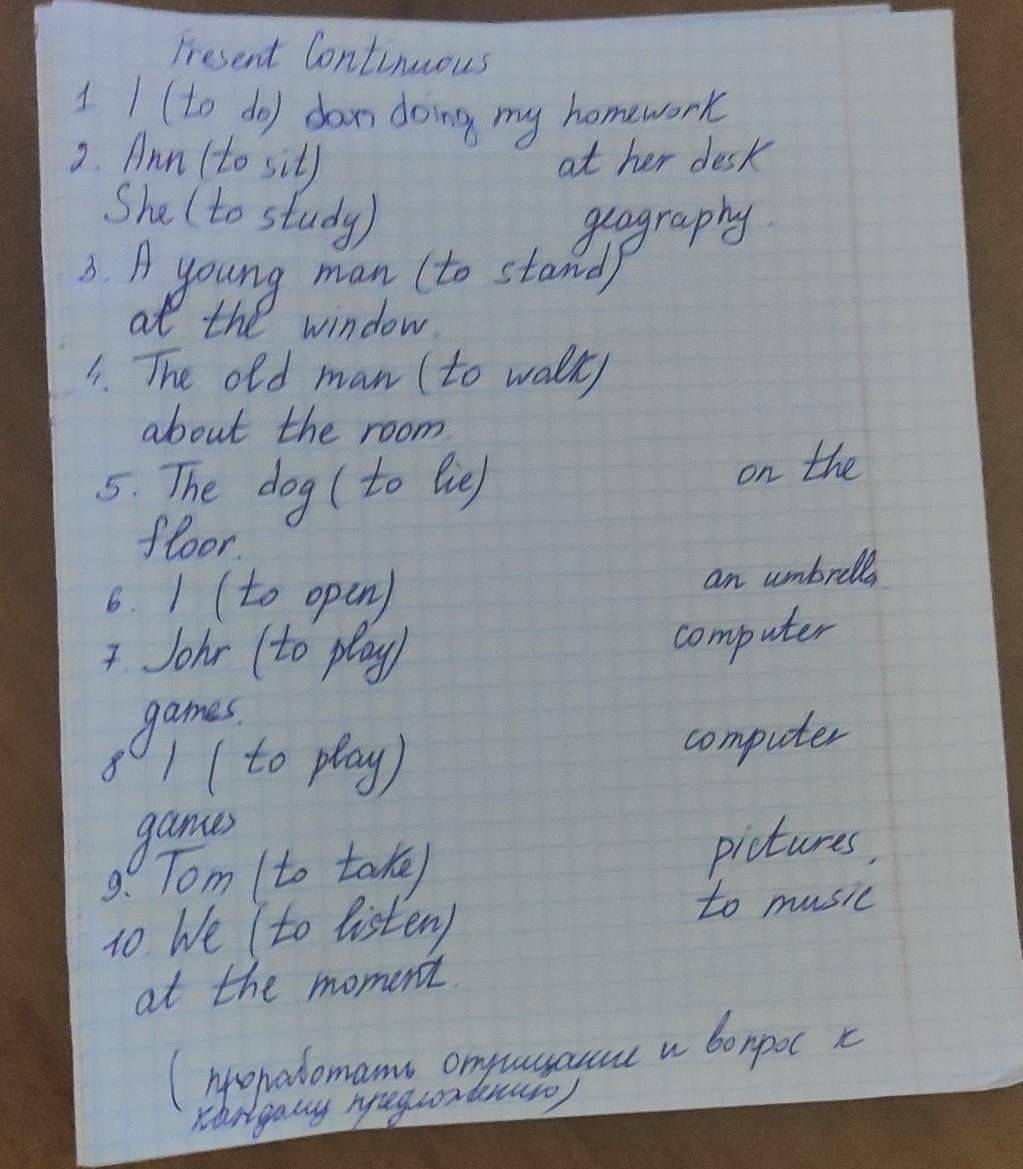 Present Continuous
1 I (to do) dam doing my homework
2. Ann (to sit) at her desk
She (to study) geagraphy.
3. A young man (to stand)
at the window.
4. The old man (to walk)
about the room.
5. The dog (to lie) on the
floor.
6. I (to open) an umbrella.
7. John (to play) computer
games.
8 I (to play) computer
games
9. Tom (to take) pictures.
10. We (to listen) to music
at the moment.
(проработать отрицание и вопрос к
каждому предложению)